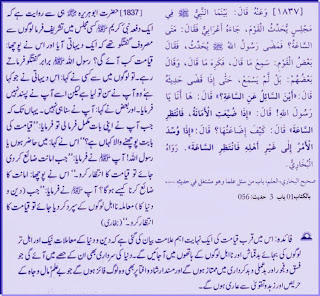 [١٨٣٧] وَعَنْهُ قَالَ: بَيْنَمَا النَّبِيُّ ﷺ فِي
مَجْلِسٍ يُحَدِّثُ الْقَوْمَ، جَاءَهُ أَعْرَابِيٌّ فَقَالَ: مَتَى
السَّاعَةُ؟ فَمَضَى رَسُولُ اللهِ ﷺ يُحَدِّثُ، فَقَالَ
بَعْضُ الْقَوْمِ: سَمِعَ مَا قَالَ، فَكَرِهَ مَا قَالَ، وَقَالَ
بَعْضُهُمْ: بَلْ لَمْ يَسْمَعْ، حَتَّى إِذَا قَضَى حَدِيثَهُ
قَالَ: «أَيْنَ السَّائِلُ عَنِ السَّاعَةِ؟» قَالَ: هَا أَنَا يَا
رَسُولَ اللهِ! قَالَ: «إِذَا ضُيِّعَتِ الْأَمَانَةُ، فَانْتَظِرِ
السَّاعَةَ» قَالَ: كَيْفَ إِضَاعَتُهَا؟ قَالَ: «إِذَا وُسِّدَ
الْأَمْرُ إِلَى غَيْرِ أَهْلِهِ فَانْتَظِرِ السَّاعَةَ». رَوَاهُ
الْبُخَارِيُّ.
صحيح البخاري، العلم، باب من سئل علما وهو مشتغل في حديثه ...
بالكتاب:01 باب 3 حديث: 056
[1837] حضرت ابو ہریرہ ﷜ ہی سے روایت ہے کہ
ایک دفعہ نبی کریم ﷺ کسی مجلس میں تشریف فرما لوگوں سے
مصروف گفتگو تھے کہ ایک دیہاتی آیا اور اس نے پوچھا:
قیامت کب آئے گی؟ رسول اللہ ﷺ برابر گفتگو کرتے
رہے۔ تو لوگوں میں سے کسی نے کہا: اس دیہاتی نے جو کہا
ہے وہ آپ نے سن تو لیا ہے لیکن اسے آپ نے پسند نہیں
فرمایا۔ اور بعض نے کہا: آپ نے سنا ہی نہیں۔ یہاں تک کہ
جب آپ نے اپنی بات مکمل فرما لی تو فرمایا: ”قیامت کی
بابت پوچھنے والا کہاں ہے؟“ اس نے کہا: میں حاضر ہوں یا
رسول اللہ! آپ ﷺ نے فرمایا: ”جب امانت ضائع کر دی
جائے تو قیامت کا انتظار کرو۔“ اس نے پوچھا: امانت کا
ضائع کرنا کیسے ہوگا؟ آپ ﷺ نے فرمایا: ”جب (دین و
دنیا کا) معاملہ نااہل لوگوں کے سپرد کر دیا جائے تو قیامت کا
انتظار کرو۔“ (بخاری)
فائدہ: اس میں قرب قیامت کی ایک نہایت اہم علامت بیان کی گئی ہے کہ دین و دنیا کے معاملات نیک اور اہل تر
لوگوں کی بجائے بدقماش اور نااہل لوگوں کے ہاتھوں میں آجائیں گے۔ دنیا کی سرداری بھی ان کے حصے میں آئے گی جو
فسق و فجور اور بد عملی و بدکرداری میں ممتاز ہوں گے اور مسند ارشاد و افتا پر بھی وہ لوگ فائز ہوں گے جو بےعلم، مال و جاہ کے
حریص اور زہد و تقویٰ سے عاری ہوں گے۔